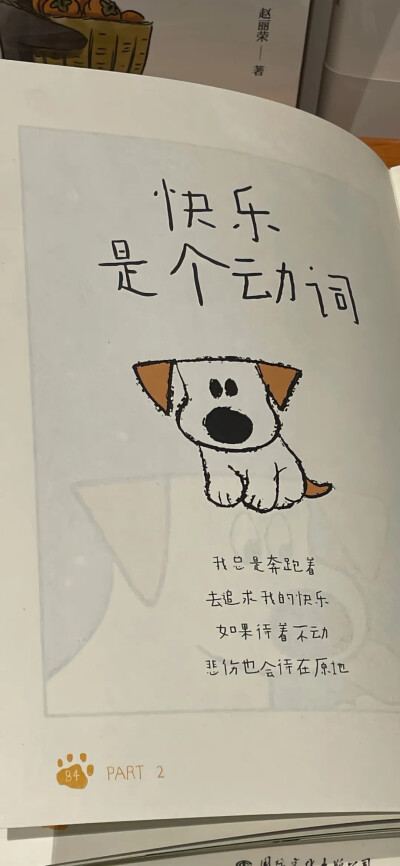 赵丽荣 — 著
快乐
是个动词
我总是奔跑着
去追求我的快乐
如果待着不动
悲伤也会待在原地
84 PART 2